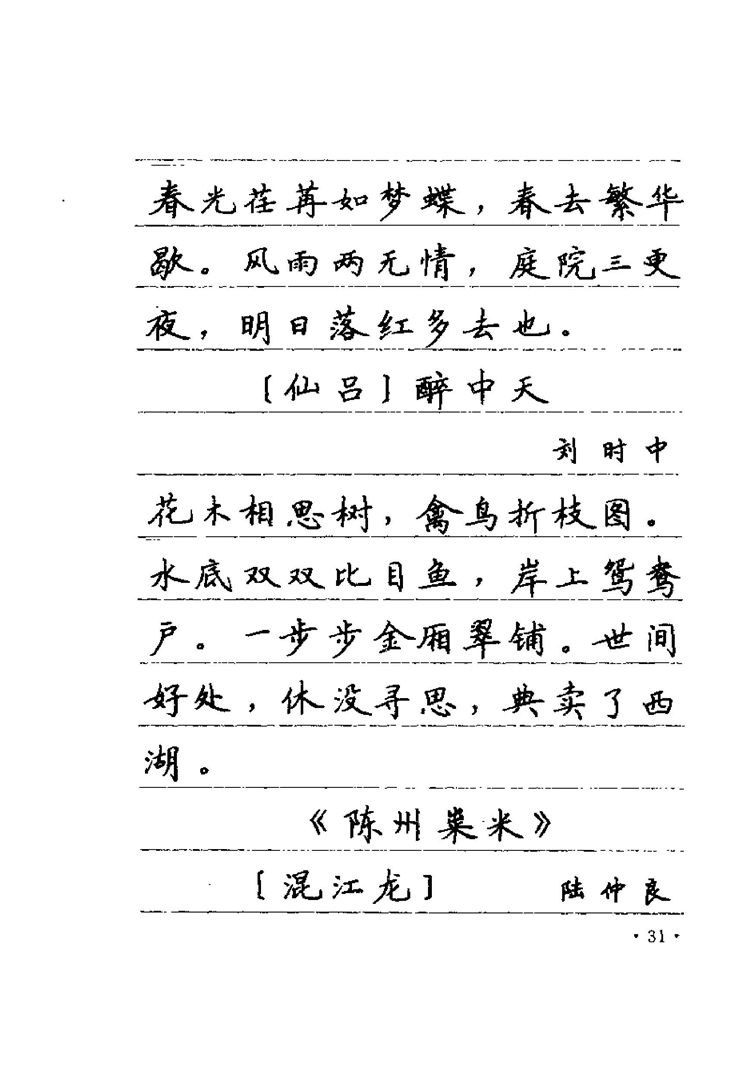 春光荏苒如梦蝶，春去繁华
歇。风雨两无情，庭院三更
夜，明日落红多去也。
［仙吕］醉中天
刘时中
花木相思树，禽鸟折枝图。
水底双双比目鱼，岸上鸳鸯
户。一步步金厢翠铺。世间
好处，休没寻思，典卖了西
湖。
《陈州粜米》
［混江龙］ 陆仲良
·31·